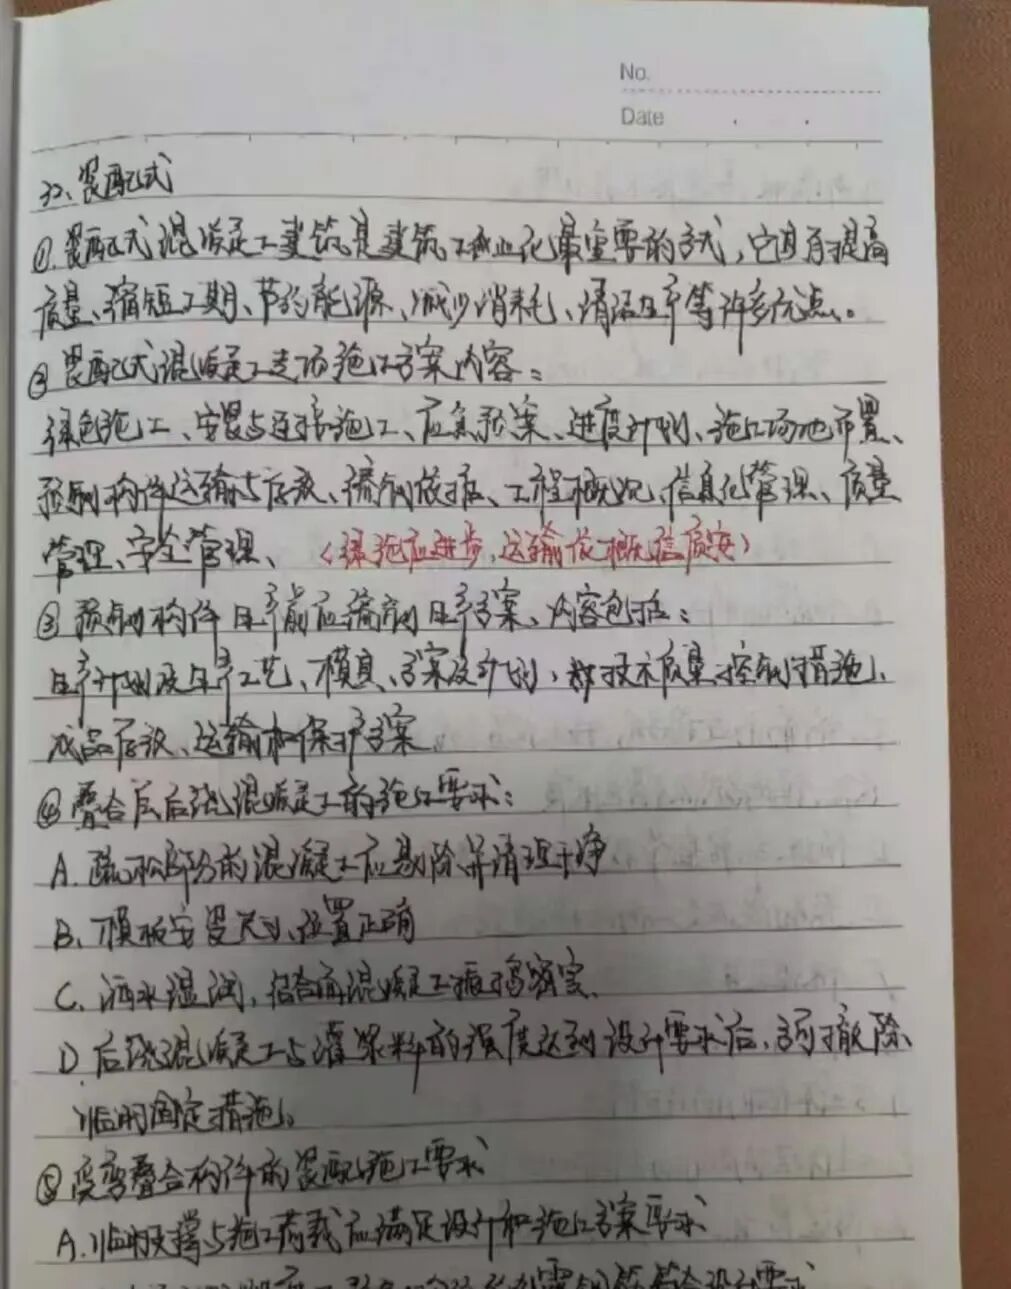 No.
Date
32、装配式
①.装配式混凝土建筑是建筑工业化最重要的方式，它具有提高
质量、缩短工期、节约能源、减少消耗、清洁生产等许多优点。
②装配式混凝土专项施工方案内容：
绿色施工、安装与连接施工、应急预案、进度计划、施工场地布置、
预制构件运输与存放、编制依据、工程概况、信息化管理、质量
管理、安全管理、（绿施应进步，运输依概信质安）
③预制构件生产前应编制生产方案、内容包括：
生产计划及生产工艺、模具、方案及计划，技术质量控制措施、
成品存放、运输和保护方案
④叠合层后浇混凝土的施工要求：
A.疏松部分的混凝土应剔除并清理干净
B、模板安装尺寸、位置正确
C、洒水湿润，结合面混凝土振捣密实、
D、后浇混凝土与灌浆料的强度达到设计要求后，方可撤除
临时固定措施。
⑤受弯叠合构件的装配施工要求
A.临时支撑与施工荷载应满足设计和施工方案要求